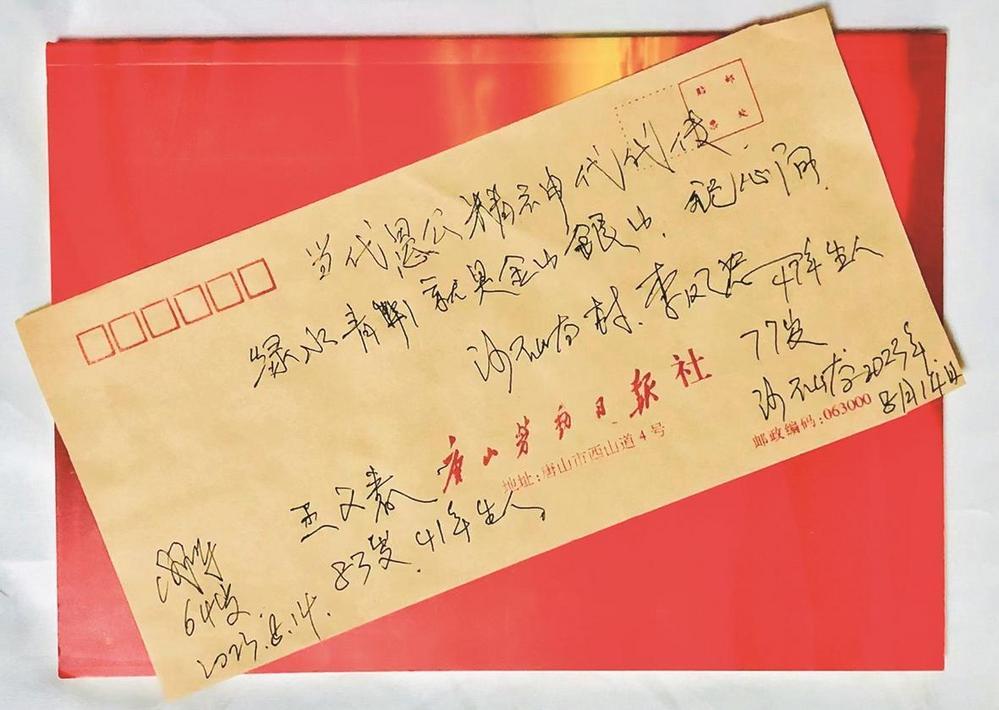 贴 邮
票 处
当代愚公精神代代传
绿水青山就是金山银山. 记心间.
沙石峪村. 李凤 47年生人
77岁
沙石峪2023年.
8月14日
唐山劳动日报社
地址:唐山市西山道4号
邮政编码:063000
王义
83岁. 41年生人.
64岁.
2023.8.14.